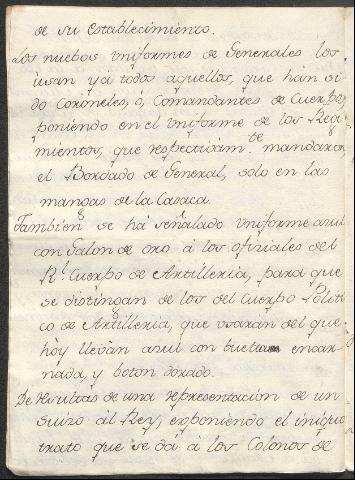 de su establecimiento.
Los nuebos uniformes de Generales los
usan yá todos aquellos, que hán si
do Coroneles, ó, Comandantes de Cuerpo,
poniendo en el uniforme de los Regi
mientos, que respectivam.te mandaron
el Bordado de General, solo en las
mangas de la Casaca.
Tambien se há señalado uniforme azul
con Galon de oro á los oficiales del
R.l Cuerpo de Artilleria, para que
se distingan de los del Cuerpo Politi
co de Artilleria, que usarán del que
hoy lleván azul con buelta encar-
nada, y boton dorado.
De resultas de una representacion de un
suizo ál Rey, exponiendo el iniquo
trato que se dá á los Colonos de